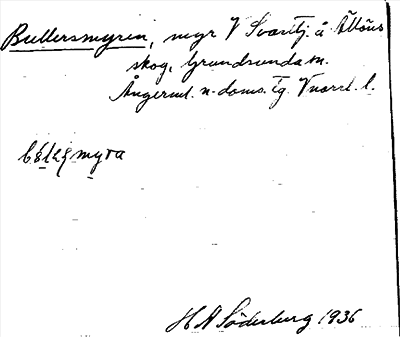 Bullersmyren, myr V Svarttj. å Ältöns
skog, Grundsunda sn.
Ångerml. n. doms. tg. Vnorrl. l.
myra
H A Söderberg 1936